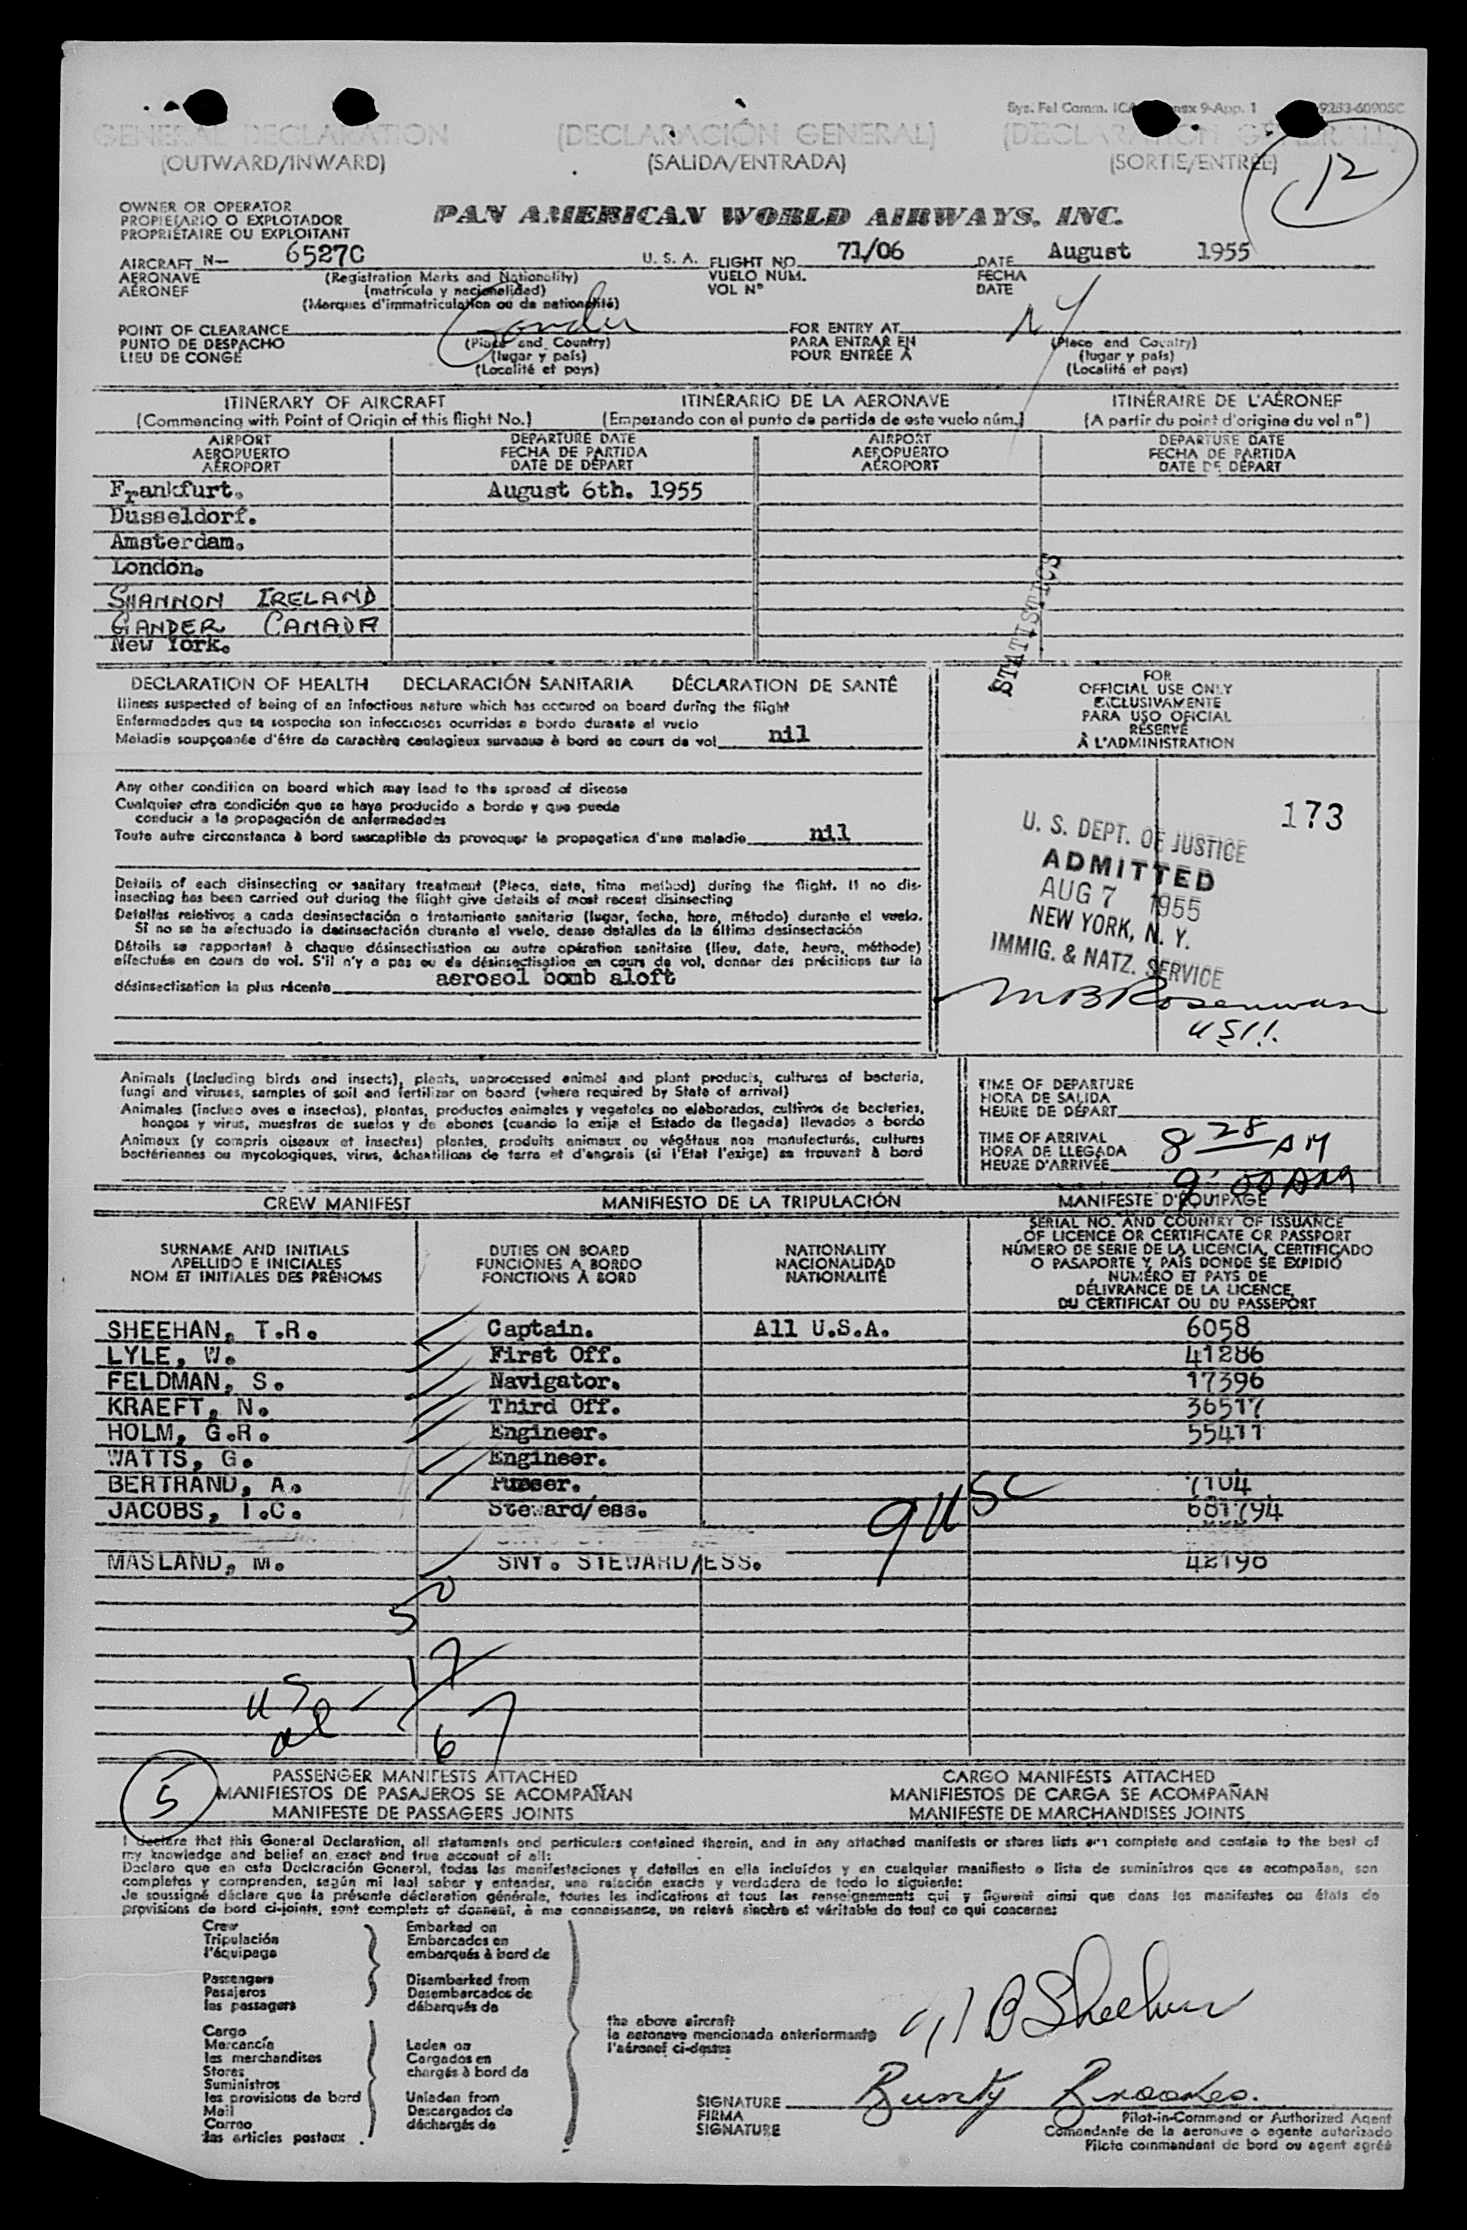 Sys. Fel Comm. ICA
9-App. 1
GENERAL DECLARATION (DECLARACIÓN GENERAL)
(OUTWARD/INWARD) (SALIDA/ENTRADA) (SORTIE/ENTRÉE)
12
OWNER OR OPERATOR
PROPIETARIO O EXPLOTADOR
PROPRIÉTAIRE OU EXPLOITANT
PAN AMERICAN WORLD AIRWAYS, INC.
AIRCRAFT N— 6527C U. S. A. FLIGHT NO. 71/06 DATE August 1955
AERONAVE (Registration Marks and Nationality) VUELO NUM. FECHA
AÉRONEF (matrícula y nacionalidad) VOL N° DATE
(Marques d'immatriculation ou de nationalité)
POINT OF CLEARANCE Gander FOR ENTRY AT NY
PUNTO DE DESPACHO (Place and Country) PARA ENTRAR EN (Place and Country)
LIEU DE CONGÉ (lugar y país) POUR ENTRÉE À (lugar y país)
(Localité et pays) (Localité et pays)
ITINERARY OF AIRCRAFT ITINERARIO DE LA AERONAVE ITINÉRAIRE DE L'AÉRONEF
(Commencing with Point of Origin of this flight No.) (Empezando con el punto de partida de este vuelo núm.) (A partir du point d'origine du vol n°)
AIRPORT DEPARTURE DATE AIRPORT DEPARTURE DATE
AEROPUERTO FECHA DE PARTIDA AEROPUERTO FECHA DE PARTIDA
AÉROPORT DATE DE DÉPART AÉROPORT DATE DE DÉPART
Frankfurt. August 6th. 1955
Dusseldorf.
Amsterdam.
London.
SHANNON IRELAND
GANDER CANADA
New York.
STATISTICS
DECLARATION OF HEALTH DECLARACIÓN SANITARIA DÉCLARATION DE SANTÉ
Illness suspected of being of an infectious nature which has occured on board during the flight
Enfermedades que se sospecha son infecciosas ocurridas a bordo durante el vuelo
Maladie soupçonnée d'être de caractère contagieux survenue à bord en cours de vol nil
Any other condition on board which may lead to the spread of disease
Cualquier otra condición que se haya producido a bordo y que pueda
conducir a la propagación de enfermedades
Toute autre circonstance à bord susceptible de provoquer la propagation d'une maladie nil
Details of each disinsecting or sanitary treatment (Place, date, time method) during the flight. If no dis-
insecting has been carried out during the flight give details of most recent disinsecting
Detalles relativos a cada desinsectación o tratamiento sanitario (lugar, fecha, hora, método) durante el vuelo.
Si no se ha efectuado la desinsectación durante el vuelo, dense detalles de la última desinsectación
Détails se rapportant à chaque désinsectisation ou autre opération sanitaire (lieu, date, heure, méthode)
effectuée en cours de vol. S'il n'y a pas eu de désinsectisation en cours de vol, donner des précisions sur la
désinsectisation la plus récente aerosol bomb aloft
FOR
OFFICIAL USE ONLY
EXCLUSIVAMENTE
PARA USO OFICIAL
RÉSERVÉ
À L'ADMINISTRATION
173
U. S. DEPT. OF JUSTICE
ADMITTED
AUG 7 1955
NEW YORK, N. Y.
IMMIG. & NATZ. SERVICE
Animals (including birds and insects), plants, unprocessed animal and plant products, cultures of bacteria,
fungi and viruses, samples of soil and fertilizer on board (where required by State of arrival)
Animales (incluso aves e insectos), plantas, productos animales y vegetales no elaborados, cultivos de bacterias,
hongos y virus, muestras de suelos y de abonos (cuando lo exija el Estado de llegada) llevados a bordo
Animaux (y compris oiseaux et insectes) plantes, produits animaux ou végétaux non manufacturés, cultures
bactériennes ou mycologiques, virus, échantillons de terre et d'engrais (si l'Etat l'exige) se trouvant à bord
TIME OF DEPARTURE
HORA DE SALIDA
HEURE DE DÉPART
TIME OF ARRIVAL
HORA DE LLEGADA
HEURE D'ARRIVÉE
8 28 AM
9:00 AM
CREW MANIFEST MANIFIESTO DE LA TRIPULACIÓN MANIFESTE D'ÉQUIPAGE
SURNAME AND INITIALS
APELLIDO E INICIALES
NOM ET INITIALES DES PRÉNOMS
DUTIES ON BOARD
FUNCIONES A BORDO
FONCTIONS À BORD
NATIONALITY
NACIONALIDAD
NATIONALITÉ
SERIAL NO. AND COUNTRY OF ISSUANCE
OF LICENCE OR CERTIFICATE OR PASSPORT
NÚMERO DE SERIE DE LA LICENCIA, CERTIFICADO
O PASAPORTE Y PAÍS DONDE SE EXPIDIÓ
NUMÉRO ET PAYS DE
DÉLIVRANCE DE LA LICENCE,
DU CERTIFICAT OU DU PASSEPORT
SHEEHAN, T.R. Captain. All U.S.A. 6058
LYLE, W. First Off. 41286
FELDMAN, S. Navigator. 17396
KRAEFT, N. Third Off. 36517
HOLM, G.R. Engineer. 55411
WATTS, G. Engineer.
BERTRAND, A. Purser. 7104
JACOBS, I.C. Steward/ess. 681794
9 USC
MASLAND, M. SNY. STEWARD/ESS. 42198
50
17
US
al
67
5
PASSENGER MANIFESTS ATTACHED CARGO MANIFESTS ATTACHED
MANIFIESTOS DE PASAJEROS SE ACOMPAÑAN MANIFIESTOS DE CARGA SE ACOMPAÑAN
MANIFESTE DE PASSAGERS JOINTS MANIFESTE DE MARCHANDISES JOINTS
I declare that this General Declaration, all statements and particulars contained therein, and in any attached manifests or stores lists are complete and contain to the best of
my knowledge and belief an exact and true account of all:
Declaro que en esta Declaración General, todas las manifestaciones y detalles en ella incluídos y en cualquier manifiesto o lista de suministros que se acompañan, son
completos y comprenden, según mi leal saber y entender, una relación exacta y verdadera de todo lo siguiente:
Je soussigné déclare que la présente déclaration générale, toutes les indications et tous les renseignements qui y figurent ainsi que dans les manifestes ou états de
provisions de bord ci-joints, sont complets et donnent, à ma connaissance, un relevé sincère et véritable de tout ce qui concerne:
Crew Embarked on
Tripulación Embarcados en
l'équipage embarqués à bord de
Passengers Disembarked from
Pasajeros Desembarcados de
les passagers débarqués de
Cargo
Mercancía Laden on
les marchandises Cargados en
Stores chargés à bord de
Suministros
les provisions de bord Unladen from
Mail Descargados de
Correo déchargés de
les articles postaux
the above aircraft
la aeronave mencionada anteriormente
l'aéronef ci-dessus
Sheehan
SIGNATURE Bunty Brookes.
FIRMA
SIGNATURE
Pilot-in-Command or Authorized Agent
Comandante de la aeronave o agente autorizado
Pilote commandant de bord ou agent agréé